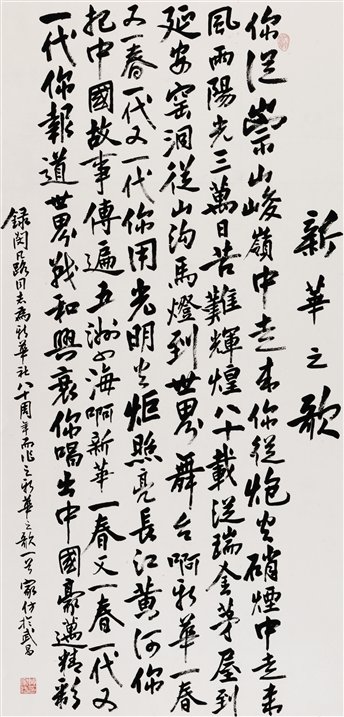 新華之歌
你從崇山峻嶺中走來你從炮火硝煙中走來
風雨陽光三萬日苦難輝煌八十載從瑞金茅屋到
延安窑洞從山沟馬燈到世界舞台啊新華一春
又一春一代又一代你用光明火炬照亮長江黄河你
把中國故事傳遍五洲山海啊新華一春又一春一代又
一代你報道世界戰和興衰你唱出中國豪邁精彩
録閻凡路同志為新華社八十周年而作之新華之歌一首 家仿於武昌